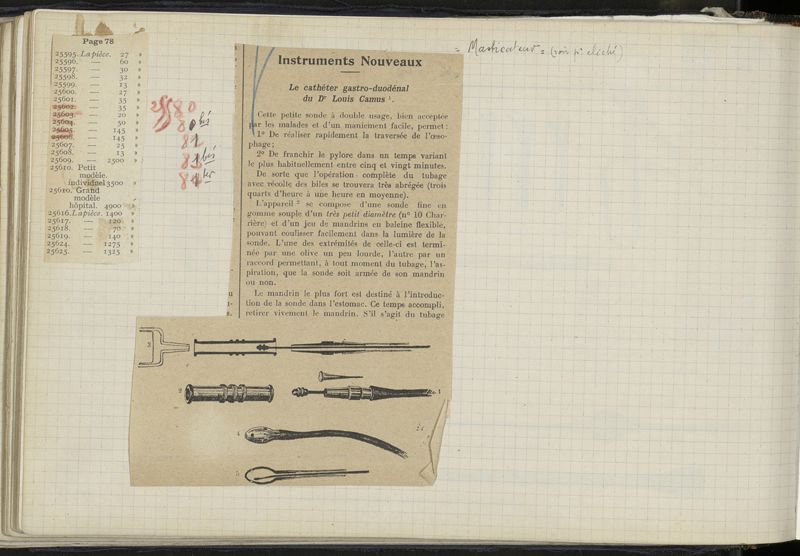 Page 78
25595. La pièce. 27 »
25596. — 60 »
25597. — 30 »
25598. — 32 »
25599. — 13 »
25600. — 27 »
25601. — 35 »
25602. — 35 »
25603. — 20 »
25604. — 50 »
25605. — 145 »
25606. — 145 »
25607. — 25 »
25608. — 13 »
25609. — 2500 »
25610. Petit
modèle.
individuel 3500 »
25610. Grand
modèle
hôpital. 4900 »
25616. La pièce. 1400 »
25617. — 120 »
25618. — 70 »
25619. — 140 »
25624. — 1275 »
25625. — 1325 »
2580
80 bis
81
81 bis
81 ter
Instruments Nouveaux
Le cathéter gastro-duodénal
du Dr Louis Camus 1.
Cette petite sonde à double usage, bien acceptée
par les malades et d'un maniement facile, permet :
1° De réaliser rapidement la traversée de l'œso-
phage ;
2° De franchir le pylore dans un temps variant
le plus habituellement entre cinq et vingt minutes.
De sorte que l'opération complète du tubage
avec récolte des biles se trouvera très abrégée (trois
quarts d'heure à une heure en moyenne).
L'appareil 2 se compose d'une sonde fine en
gomme souple d'un très petit diamètre (n° 10 Char-
rière) et d'un jeu de mandrins en baleine flexible,
pouvant coulisser facilement dans la lumière de la
sonde. L'une des extrémités de celle-ci est termi-
née par une olive un peu lourde, l'autre par un
raccord permettant, à tout moment du tubage, l'as-
piration, que la sonde soit armée de son mandrin
ou non.
Le mandrin le plus fort est destiné à l'introduc-
tion de la sonde dans l'estomac. Ce temps accompli,
retirer vivement le mandrin. S'il s'agit du tubage
3
2
1
4
5
= Masticateur = (voir pr cliché)